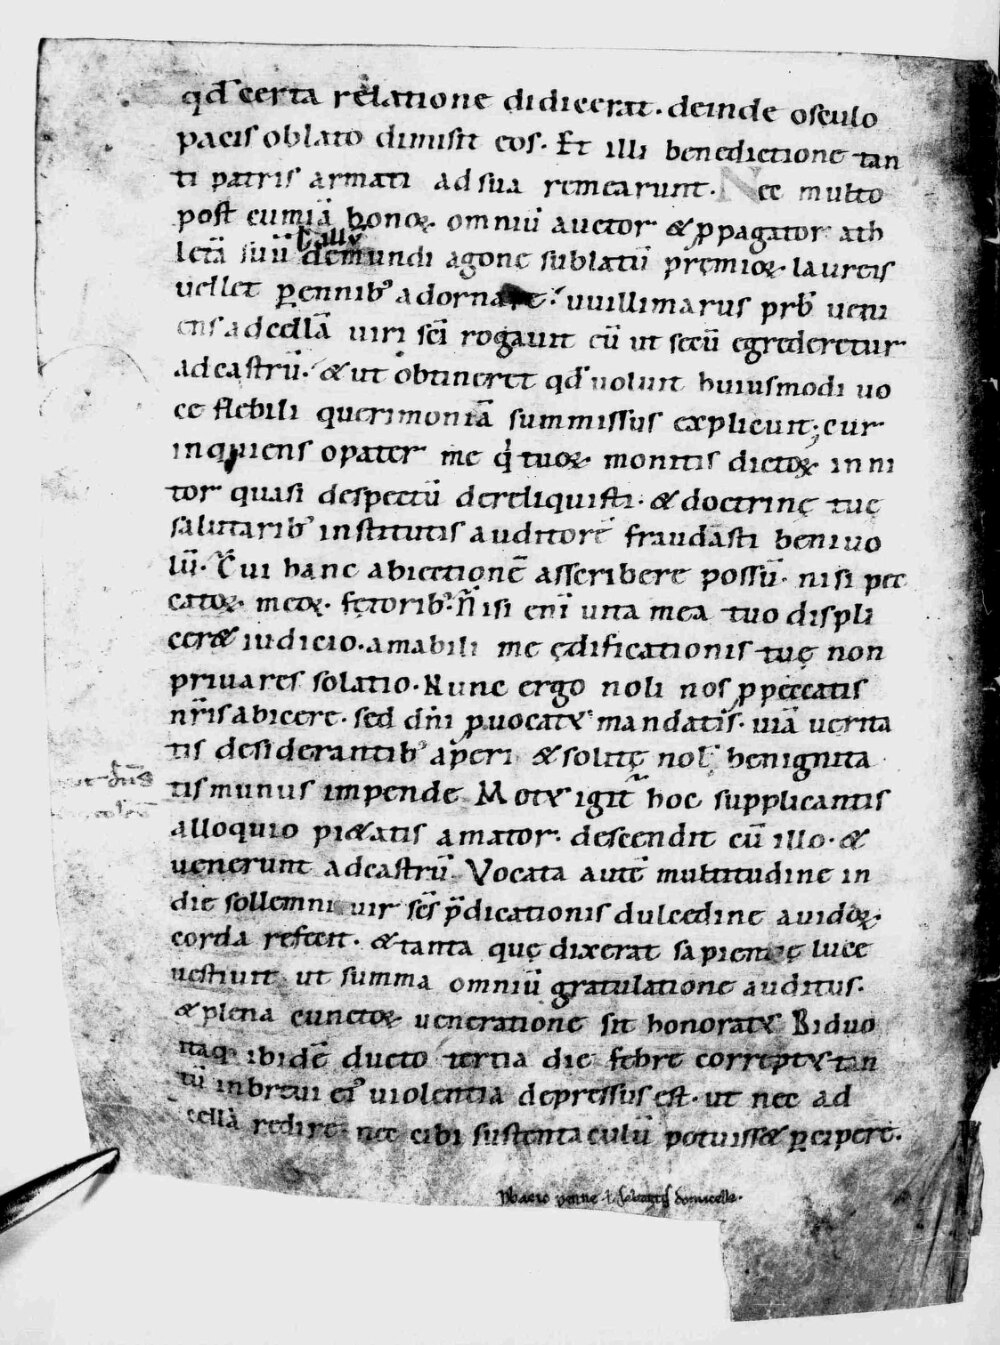 qđ certa relatione didicerat. deinde osculo
pacis oblato dimisit eos. Et illi benedictione tan
ti patris armati ad sua remearunt. Nec multo
post cum iā bonoꝝ omniū auctor & ꝓpagator ath
letā suū Gallū de mundi agone sublatū premioꝝ laureis
uellet ꝑennibꝰ adornare. uuillimarus prƀ ueni
ens ad cellā uiri sc̄i rogauit eū ut secū egrederetur
ad castrū. & ut obtineret qđ uoluit huiusmodi uo
ce flebili querimoniā summissus explicuit; cur
inquiens o pater me q tuoꝝ monitis dictoꝝ inni
tor quasi despectū dereliquisti. & doctrinę tuę
salutaribꝰ institutis auditorē fraudasti beniuo
lū. Cui hanc abiectionē asscribere possū. nisi pec
catoꝝ meoꝝ fętoribꝰ. Nisi eni uita mea tuo displi
ceret iudicio. amabili me ędificationis tuę non
priuares solatio. Nunc ergo noli nos ꝓ peccatis
nr̄is abicere. sed dn̄i ꝓuocatꝰ mandatis. uiā uerita
tis desiderantibꝰ aperi & solitę nob benignita
tis munus impende. Motꝰ igit hoc supplicantis
alloquio pietatis amator. descendit cū illo. &
uenerunt ad castrū. Vocata autē multitudine in
die sollemni uir sc̄s p̄dicationis dulcedine auidoꝝ
corda refecit. & tanta quę dixerat sapientię luce
uestiuit ut summa omniū gratulatione auditus.
& plena cunctoꝝ ueneratione sit honoratꝰ. Biduo
itaq ibidē ducto tertia die febre correptꝰ tan
tū in breui eiꝰ uiolentia depressus est. ut nec ad
cellā redire nec cibi sustentaculū potuisset ꝑcipere.
penne